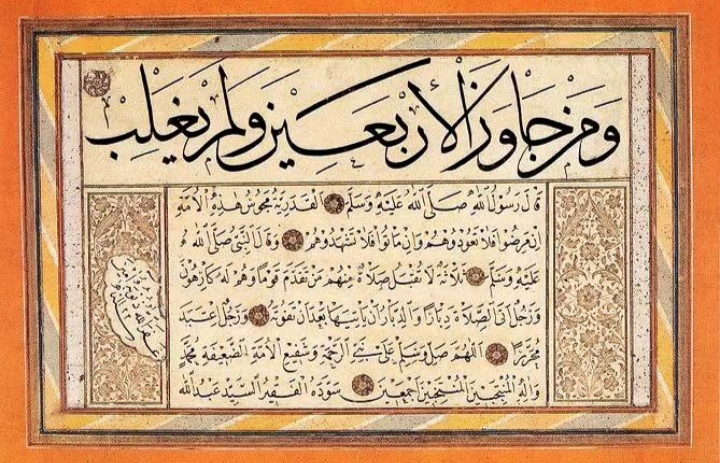 وَمَنْ جَاوَزَ الْأَرْبَعِينَ وَلَمْ يَغْلِبْ
قَالَ رَسُولُ اللهِ صَلَّى اللهُ عَلَيْهِ وَسَلَّمَ الْقَدَرِيَّةُ مَجُوسُ هٰذِهِ الْأُمَّةِ
اِنْ مَرِضُوا فَلَا تَعُودُوهُمْ وَاِنْ مَاتُوا فَلَا تَشْهَدُوهُمْ وَقَالَ النَّبِيُّ صَلَّى اللهُ
عَلَيْهِ وَسَلَّمَ ثَلَاثَةٌ لَا تُقْبَلُ صَلَاةٌ مِنْهُمْ مَنْ تَقَدَّمَ قَوْمًا وَهُمْ لَهُ كَارِهُونَ
وَرَجُلٌ اَتَى الصَّلَاةَ دِبَارًا وَالدِّبَارُ اَنْ يَأْتِيَهَا بَعْدَ اَنْ تَفُوتَهُ وَرَجُلٌ اعْتَبَدَ
مُحَرَّرًا اَللّٰهُمَّ صَلِّ وَسَلِّمْ عَلَى نَبِيِّ الرَّحْمَةِ وَشَفِيعِ الْأُمَّةِ الضَّعِيفَةِ مُحَمَّدٍ
وَاٰلِهِ اَجْمَعِينَ سَوَّدَهُ الْفَقِيرُ السَّيِّدُ عَبْدُ اللهِ
غفر الله